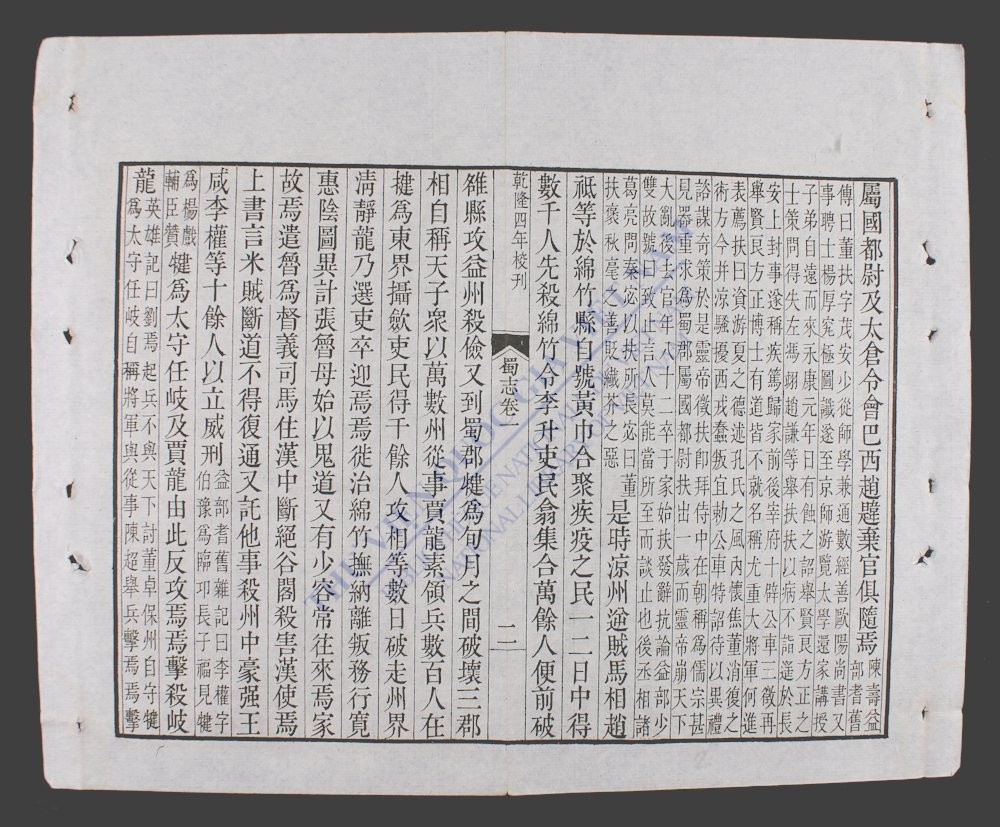 屬國都尉及太倉令會巴西趙韙棄官俱隨焉陳壽益
部耆舊
傳曰董扶字茂安少從師學兼通數經善歐陽尚書又
事聘士楊厚究極圖讖遂至京師游覽太學還家講授
子弟自遠而來永康元年日有蝕之詔舉賢良方正之
士策問得失左馮翊趙謙等舉扶扶以病不詣遙於長
安上封事遂稱疾篤歸家前後宰府十辟公車三徵再
舉賢良方正博士有道皆不就名稱尤重大將軍何進
表薦扶曰資游夏之德述孔氏之風內懷焦董消復之
術方今并涼騷擾西戎蠢叛宜勅公車特詔待以異禮
諮謀奇策於是靈帝徵扶卽拜侍中在朝稱爲儒宗甚
見器重求爲蜀郡屬國都尉扶出一歲而靈帝崩天下
大亂後去官年八十二卒于家始扶發辭抗論益部少
雙故號曰致止言人莫能當所至而談止也後丞相諸
葛亮問秦宓以扶所長宓曰董
扶襃秋毫之善貶纖芥之惡
是時涼州逆賊馬相趙
祗等於綿竹縣自號黃巾合聚疾疫之民一二日中得
數千人先殺綿竹令李升吏民翕集合萬餘人便前破
乾隆四年校刊
蜀志卷一
二
雒縣攻益州殺儉又到蜀郡犍爲旬月之間破壞三郡
相自稱天子衆以萬數州從事賈龍素領兵數百人在
揵爲東界攝斂吏民得千餘人攻相等數日破走州界
淸靜龍乃選吏卒迎焉焉徙治綿竹撫納離叛務行寬
惠陰圖異計張魯母始以鬼道又有少容常往來焉家
故焉遣魯爲督義司馬住漢中斷絕谷閣殺害漢使焉
上書言米賊斷道不得復通又託他事殺州中豪强王
咸李權等十餘人以立威刑益部耆舊雜記曰李權字
伯豫爲臨邛長子福見犍
爲楊戲
輔臣贊
犍爲太守任岐及賈龍由此反攻焉焉擊殺岐
龍英雄記曰劉焉起兵不與天下討董卓保州自守犍
爲太守任岐自稱將軍與從事陳超舉兵擊焉焉擊